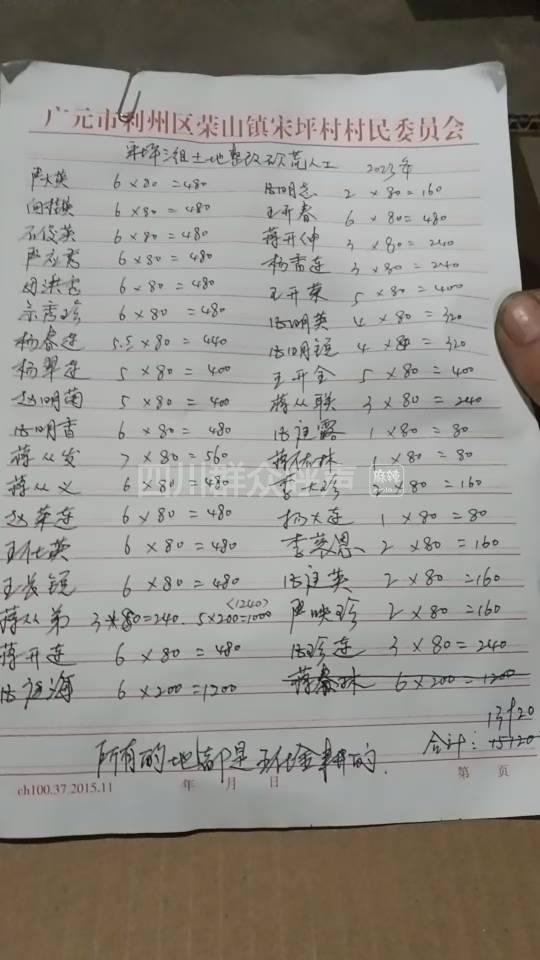 广元市利州区荣山镇宋坪村村民委员会
宋坪三组土地整改砍荒人工 2023年
严大英 6×80=480
向桂英 6×80=480
石俊英 6×80=480
严应秀 6×80=480
母洪秀 6×80=480
宗秀珍 6×80=480
杨春连 5.5×80=440
杨翠连 5×80=400
赵明菊 5×80=400
明香 6×80=480
蒋从发 7×80=560
蒋从义 6×80=480
赵荣连 6×80=480
王仕英 6×80=480
王发锐 6×80=480
蒋从弟 3×80=240. 5×200=1000 <1240>
蒋开连 6×80=480
海 6×200=1200
明 2×80=160
王开春 6×80=480
蒋开伸 3×80=240
杨香连 3×80=240
王开荣 5×80=400
明英 4×80=320
明锐 4×80=320
王开全 5×80=400
蒋从联 3×80=240
露 1×80=80
蒋 林 1×80=80
李大珍 ×80=160
杨大连 1×80=80
李慕恩 2×80=160
英 2×80=160
严映珍 2×80=160
珍连 3×80=240
蒋春林 6×200=1200
13920
合计: 15120
所有的地都是王仕金耕的.
年 月 日
第 页
ch100.37.2015.11
四川群众呼声